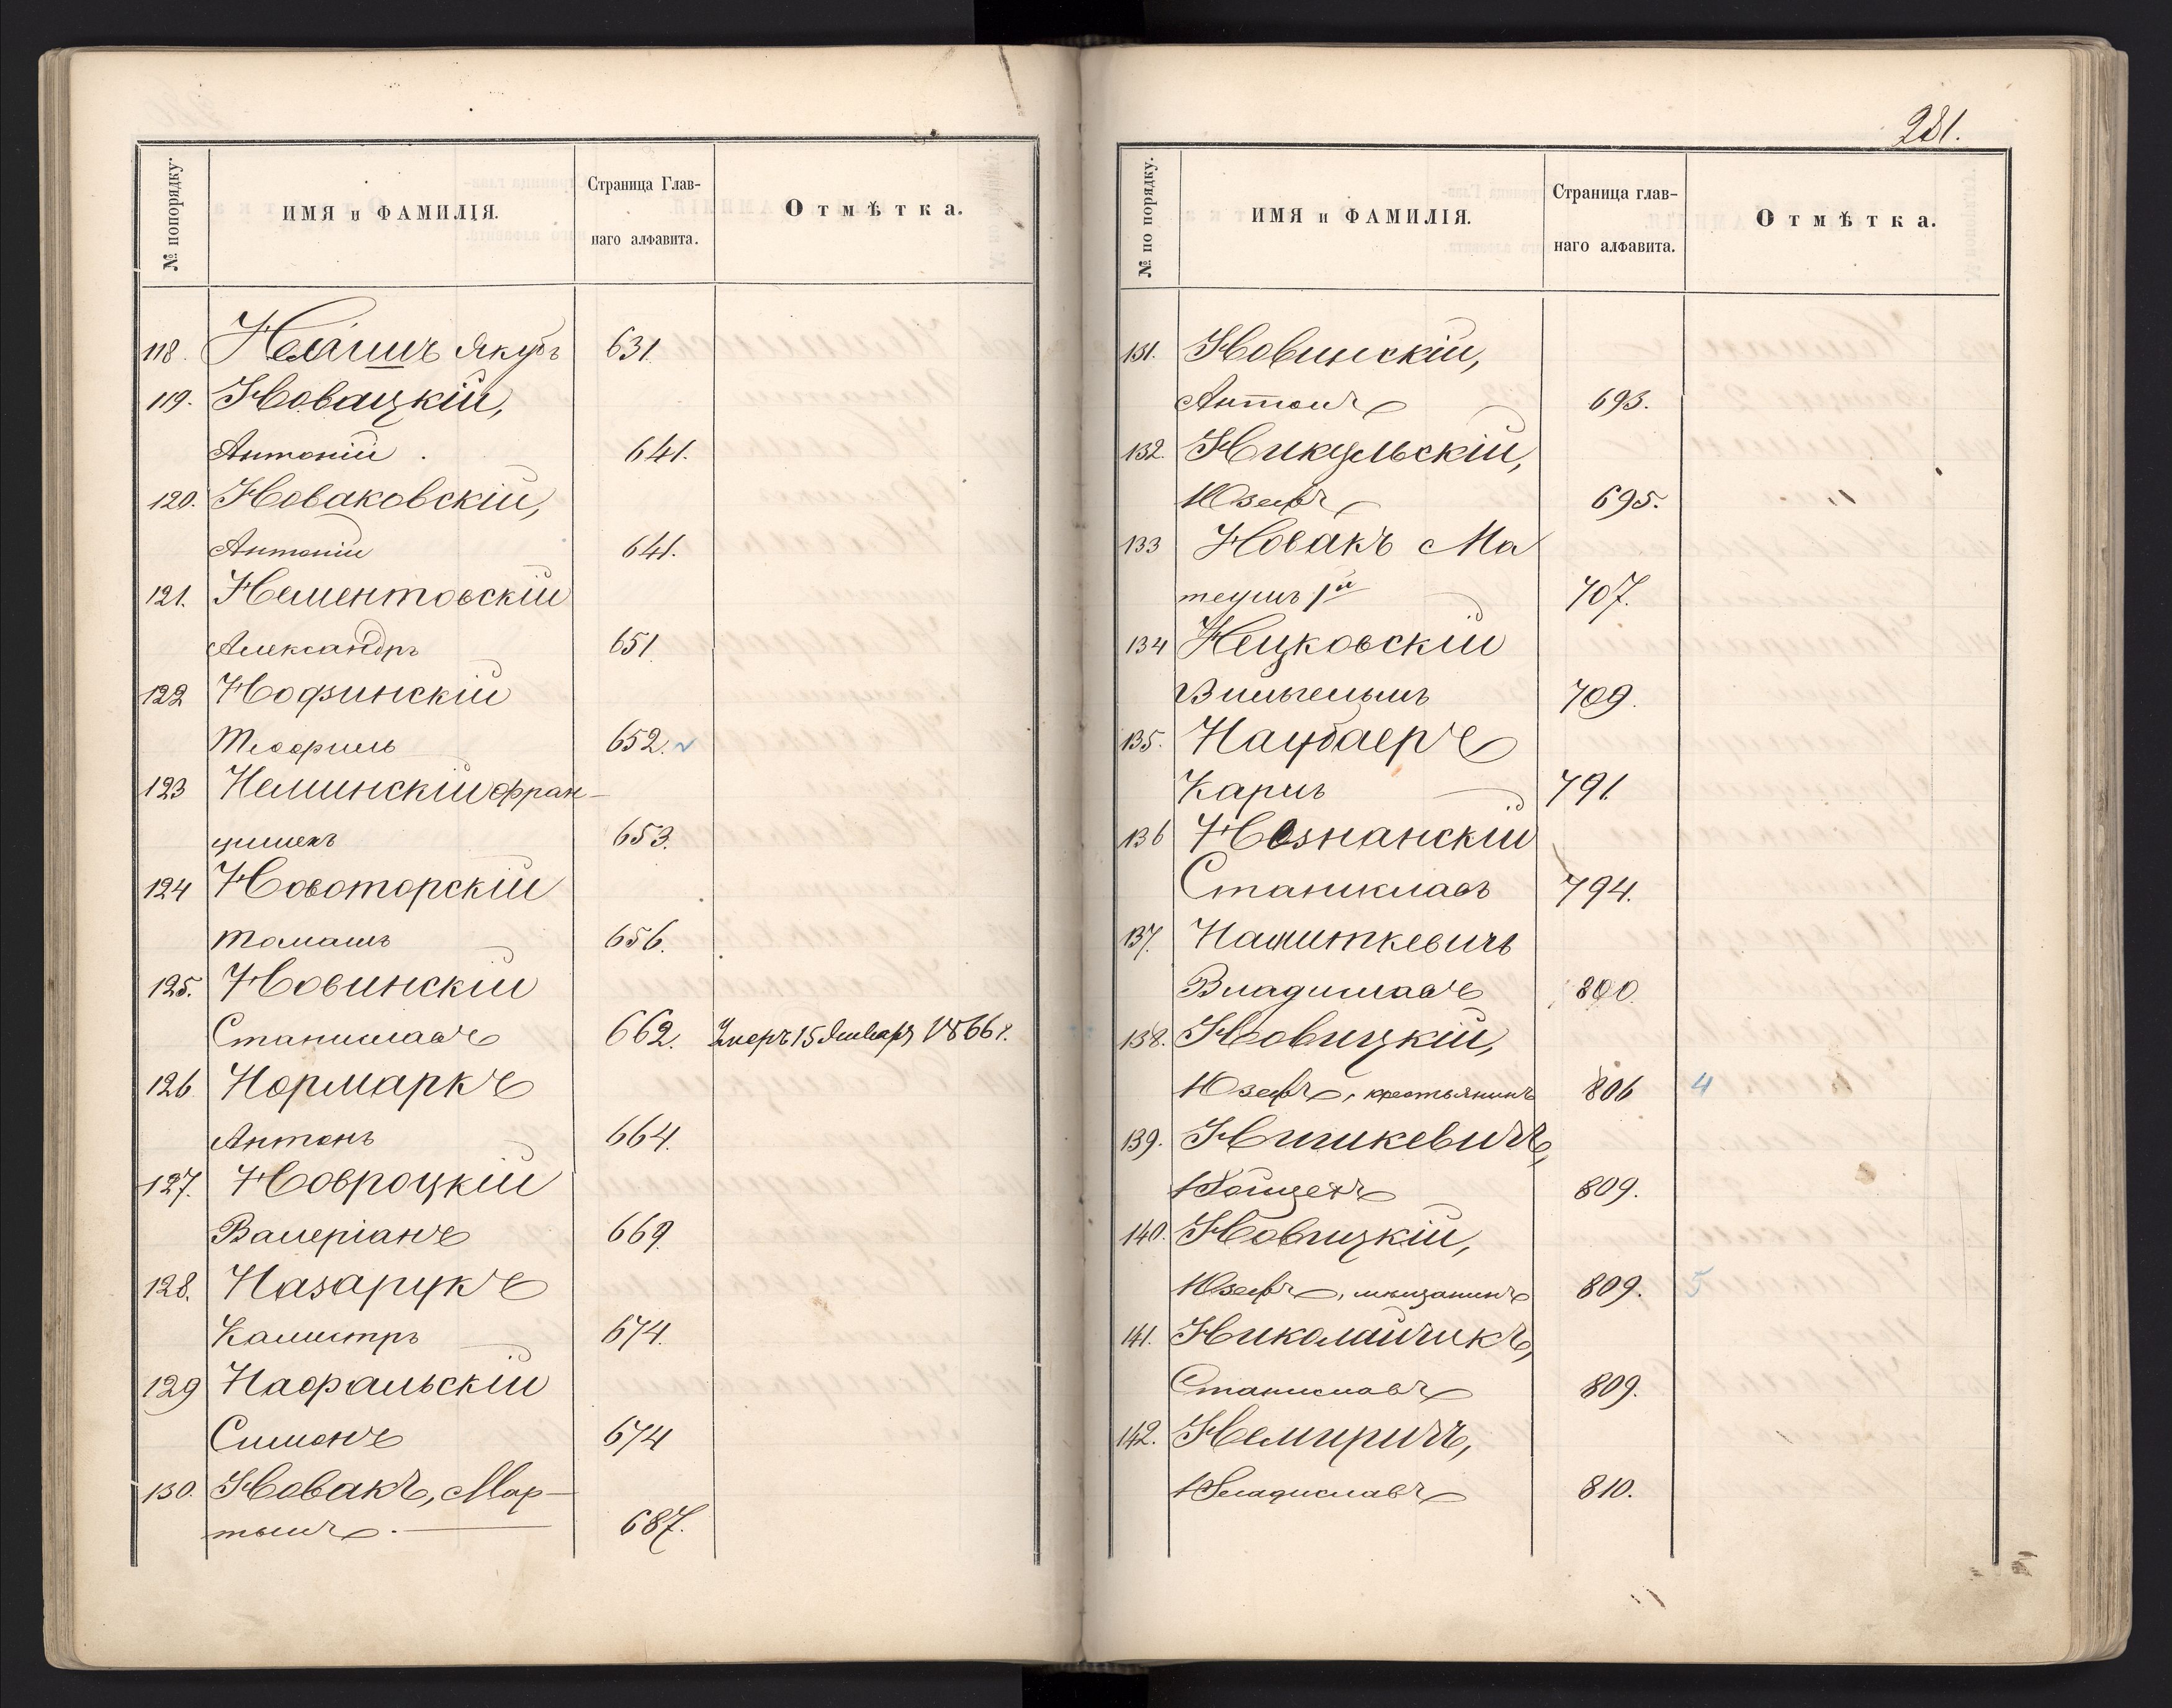 № попорядку.
ИМЯ и ФАМИЛІЯ.
Страница Глав-
наго алфавита.
Отмѣтка.
118. Якубъ 631.
119. Новацкій,
Антоній . 641.
120. Новаковскій,
Антоній 641.
121. Нементовскій
Александръ 651.
122 Нофинскій
Теофиль 652.
123 Неминскій Фран-
цишекъ 653.
124 Новоторскій
Томашъ 656.
125. Новинскій
Станиславъ 662. Умеръ 15 Января 1866 г.
126 Нормаркъ
Антонъ 664.
127. Новроцкій
Валеріанъ 669.
128. Назарукъ
Калистръ 674.
129 Нафальскій
Симонъ 674
130. Новакъ, Мар-
тынъ. 687.
281.
№ по порядку.
ИМЯ и ФАМИЛІЯ.
Страница глав-
наго алфавита.
Отмѣтка.
131. Новинскій,
Антонъ 693.
132. Никульскій,
Юзефъ 695.
133 Новакъ Ма
теушъ 1й 707.
134 Нецковскій
Вильгельмъ 709.
135. Наубаеръ
Карлъ 791.
136 Нознанскій
Станиславъ 794.
137.
Владиславъ 800.
138. Новицкій,
Юзефъ, крестьянинъ 806 4
139. Нишкевичъ,
Войцехъ 809.
140. Новицкій,
Юзефъ, мѣщанинъ 809. 5
141. Николайчикъ,
Станиславъ 809.
142. Немиричъ,
Владиславъ 810.